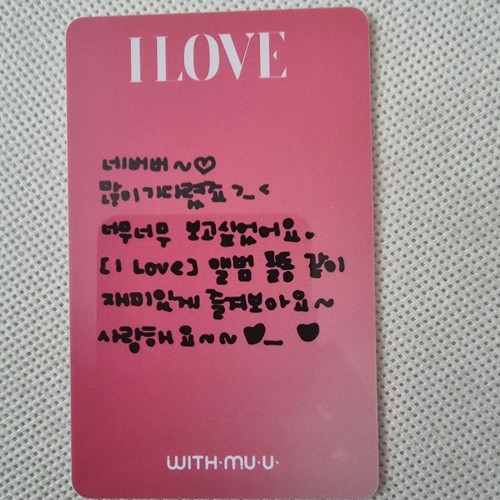 I LOVE
네버버~♡
많이 기다렸죠 ㄱ_<
너무너무 보고싶었어요.
[I Love] 앨범 활동 같이
재미있게 즐겨보아요~
사랑해요~~♥_ ♥
WITH·MU·U·